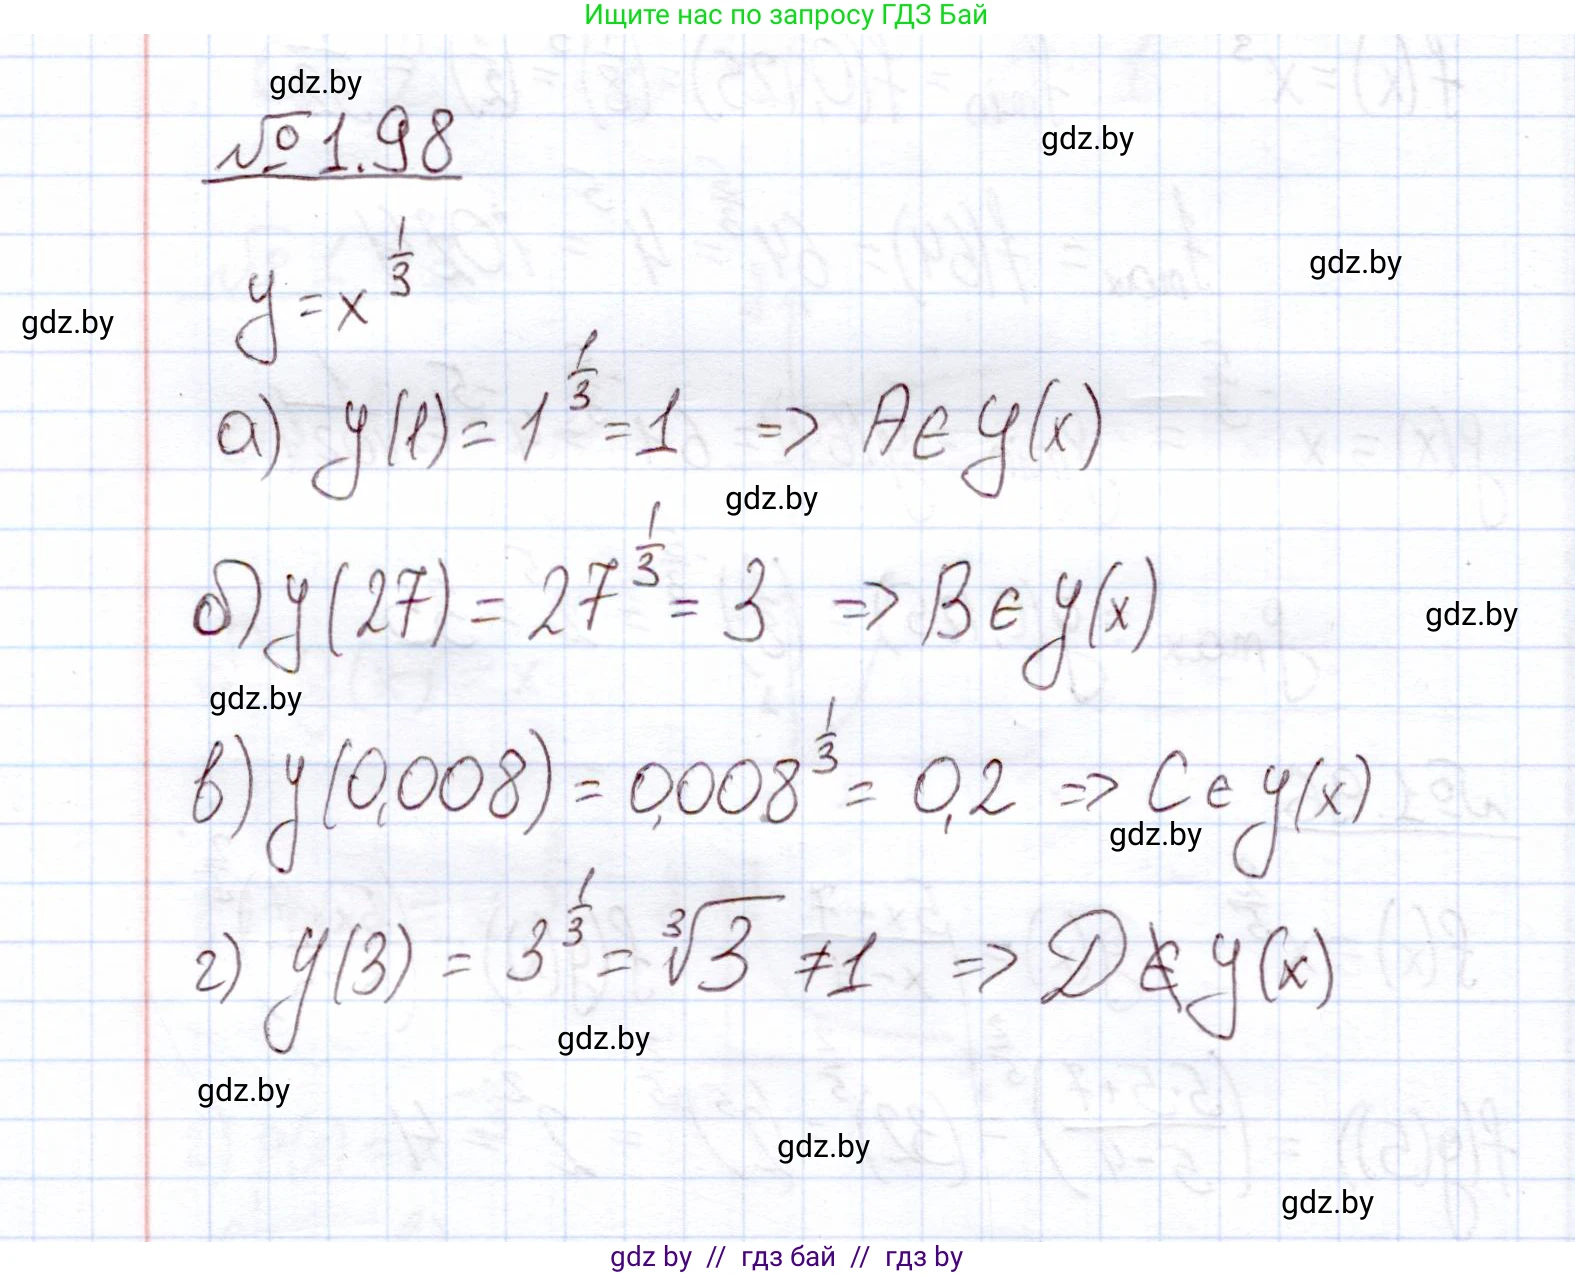 Ищите нас по запросу ГДЗ Бай
gdz.by
№ 1.98
gdz.by
y = x^{1/3}
gdz.by
gdz.by
а) y(1) = 1^{1/3} = 1 => A ∈ y(x)
gdz.by
б) y(27) = 27^{1/3} = 3 => B ∈ y(x)
gdz.by
gdz.by
в) y(0,008) = 0,008^{1/3} = 0,2 => C ∈ y(x)
gdz.by
г) y(3) = 3^{1/3} = ∛3 ≠ 1 => D ∉ y(x)
gdz.by
gdz.by
gdz.by
gdz.by
gdz by // гдз бай // гдз by